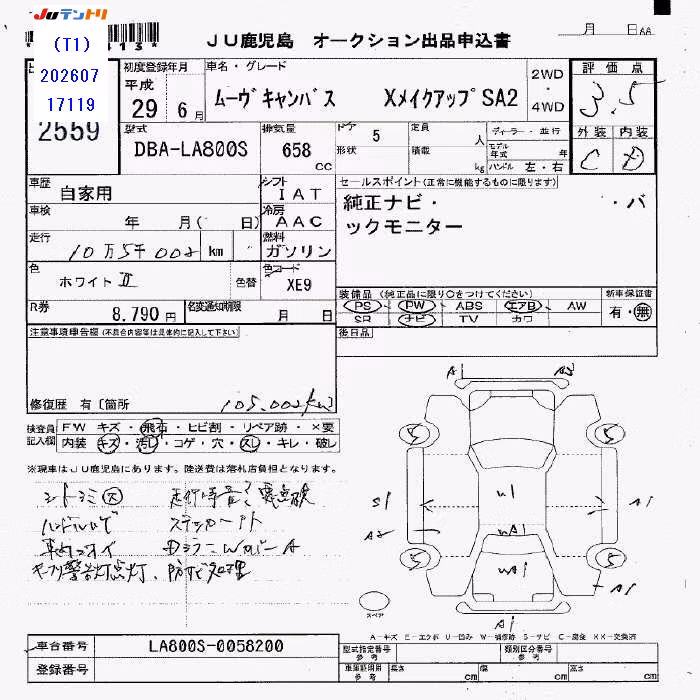 JUテントリ
(T1)
202607
17119
2559
JU鹿児島 オークション出品申込書
月 日AA
初度登録年月
平成
29年6月
車名・グレード
ムーヴキャンバス XメイクアップSA2
2WD
・
4WD
評価点
3.5
外装 内装
C D
型式
DBA-LA800S
排気量
658
CC
ドア 5
形状
定員 人
積載 kg
ディーラー・並行
モデル年式 年
ハンドル 左・右
車歴
自家用
シフト
IAT
車検
年 月( 日)
冷房
AAC
走行
10万5千002 km
燃料
ガソリン
色
ホワイトⅡ
色替
色コード
XE9
R券
8.790円
名変通知期限
月 日
セールスポイント(正常に機能するものに限ります)
純正ナビ・ ・バ
ックモニター
装備品(純正品に限り○をつけてください)
PS PW ABS エアB AW
SR ナビ TV カワ
新車保証書
有・無
注意事項申告欄(不具合内容等は具体的に記入して下さい)
後日品
修復歴 有〔箇所
105,002km
検査員
記入欄
FW キズ・飛石・ヒビ割・リペア跡・×要
内装 キズ・汚レ・コゲ・穴・スレ・キレ・破レ
※現車はJU鹿児島にあります。陸送費は落札店負担となります。
シートシミ大
ハンドルハゲ
ステッカーアト
キーフリ警告灯点灯、防サビ処理
A
A2
5
5
5
5
S1
A2
A1
A1
A1
W1
WA1
WA1
スペア
A-キズ E-エクボ U-凹み W-補修跡 S-サビ C-腐食 XX-交換済
車台番号
LA800S-0058200
登録番号
型式指定番号
参考
類別区分番号
参考
車庫証明用
参考
長さ cm
幅 cm
高さ cm